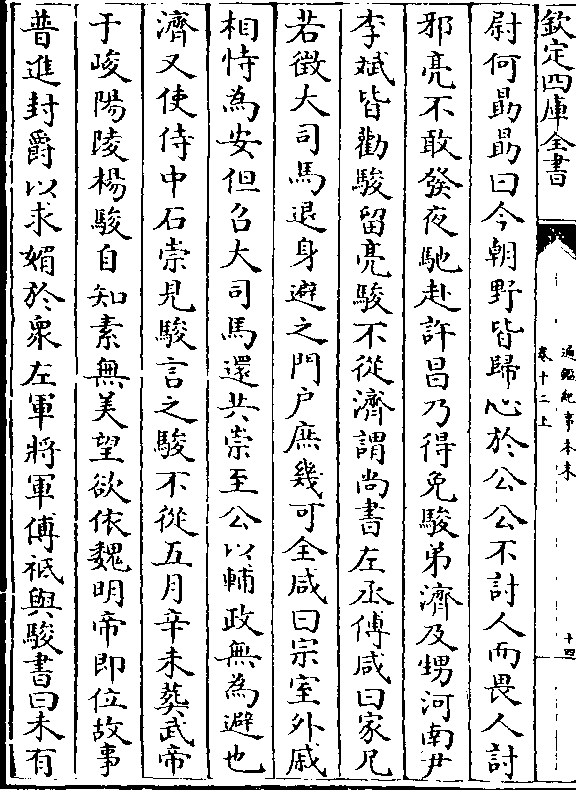 欽定四庫全書
通鑑紀事本末
卷十二上
十四
尉何勗勗曰今朝野皆歸心於公公不討人而畏人討
邪亮不敢發夜馳赴許昌乃得免駿弟濟及甥河南尹
李斌皆勸駿留亮駿不從濟謂尚書左丞傅咸曰家兄
若徵大司馬退身避之門戶庶幾可全咸曰宗室外戚
相恃為安但召大司馬還共崇至公以輔政無為避也
濟又使侍中石崇見駿言之駿不從五月辛未葬武帝
于峻陽陵楊駿自知素無美望欲依魏明帝即位故事
普進封爵以求媚於衆左軍將軍傅祗與駿書曰未有